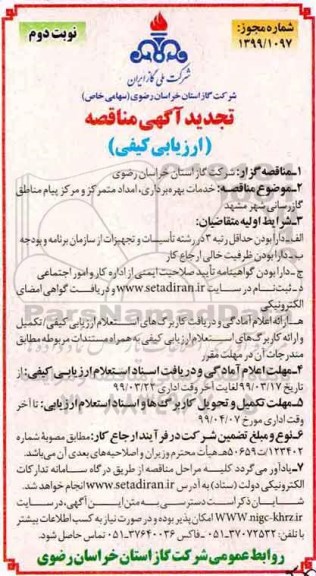 شماره مجوز:
۱۳۹۹/۱۰۹۷
نوبت دوم
شرکت ملی گاز ایران
شرکت گاز استان خراسان رضوی (سهامی خاص)
تجدید آگهی مناقصه
(ارزیابی کیفی)
۱-مناقصه گزار: شرکت گاز استان خراسان رضوی
۲-موضوع مناقصه: خدمات بهره‌برداری، امداد متمرکز و مرکز پیام مناطق
گازرسانی شهر مشهد
۳-شرایط اولیه متقاضیان:
الف-دارا بودن حداقل رتبه ۳ در رشته تأسیسات و تجهیزات از سازمان برنامه و بودجه
ب-دارا بودن ظرفیت خالی ارجاع کار
ج-دارا بودن گواهینامه تأیید صلاحیت ایمنی از اداره کار و امور اجتماعی
د-ثبت‌نام در سایت www.setadiran.ir و دریافت گواهی امضای
الکترونیکی
هـ-ارائه اعلام آمادگی و دریافت کاربرگ‌های استعلام ارزیابی کیفی/تکمیل
و ارائه کاربرگ‌های استعلام ارزیابی کیفی به همراه مستندات مربوطه مطابق
مندرجات آن در مهلت مقرر
۴-مهلت اعلام آمادگی و دریافت اسناد استعلام ارزیابی کیفی: از
تاریخ ۹۹/۰۳/۱۷ لغایت آخر وقت اداری ۹۹/۰۳/۲۲
۵-مهلت تکمیل و تحویل کاربرگ‌ها و اسناد استعلام ارزیابی: تا آخر
وقت اداری مورخ ۹۹/۰۴/۰۷
۶-نوع و مبلغ تضمین شرکت در فرآیند ارجاع کار: مطابق مصوبه شماره
۱۲۳۴۰۲/ت۵۰۶۵۹هـ هیأت محترم وزیران و اصلاحیه‌های بعدی آن می‌باشد.
۷-یادآور می گردد کلیه مراحل مناقصه از طریق درگاه سامانه تدارکات
الکترونیکی دولت (ستاد) به آدرس www.setadiran.ir انجام خواهد شد.
شایان ذکر است دسترسی به متن این آگهی، در سایت
WWW.nigc-khrz.ir امکان پذیر بوده و در صورت نیاز به کسب اطلاعات بیشتر
با تلفن: ۳۷۰۷۲۵۳۲-۰۵۱ فاکس ۳۷۶۴۰۰۳۶-۰۵۱ تماس حاصل شود.
روابط عمومی شرکت گاز استان خراسان رضوی